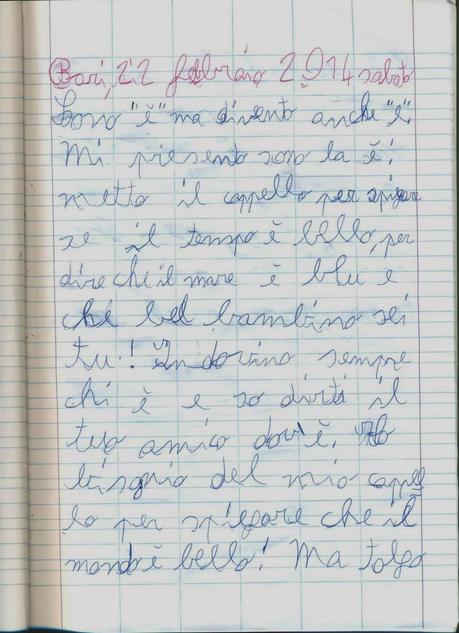 Bari, 22 febbraio 2014 sabato
Sono "è" ma divento anche "e".
Mi presento sono la è;
metto il cappello per spigare
se il tempo è bello, per
dire che il mare è blu e
che bel bambino sei
tu! Indovino sempre
chi è e so dirti il
tuo amico dov'è. Ho
bisogno del mio cappel
lo per spiegare che il
mondo è bello! Ma tolgo